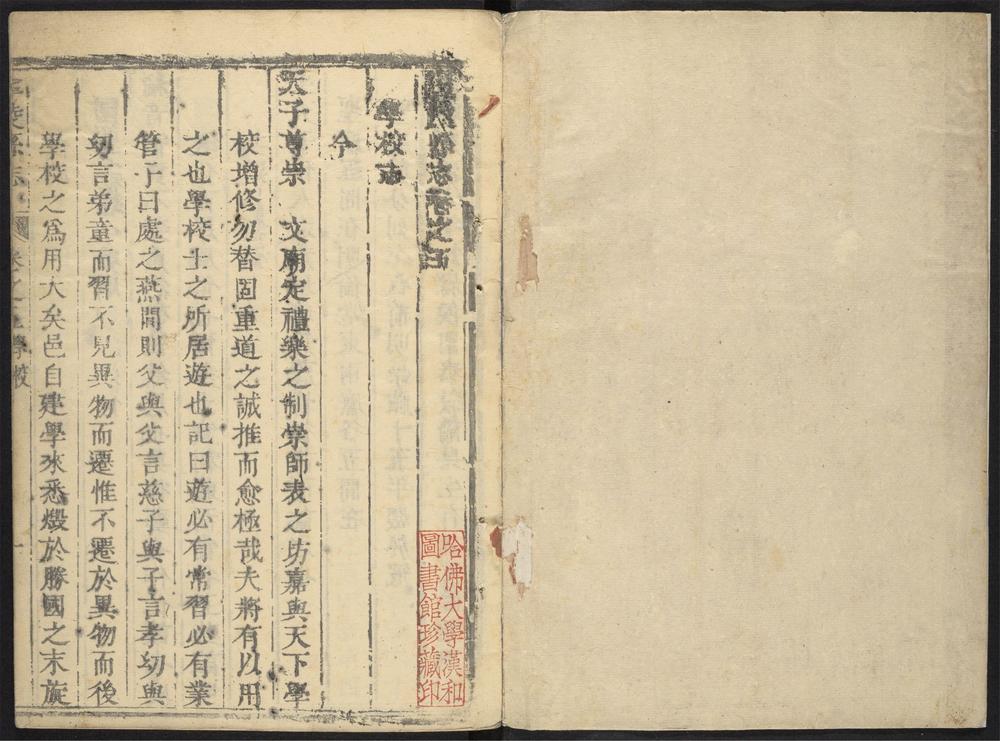 縣志卷之五
學校志
今
天子尊崇 文廟定禮樂之制崇師表之坊嘉與天下學
校增修勿替固重道之誠推而愈極哉夫將有以用
之也學校士之所居遊也記曰遊必有常習必有業
管子曰處之燕閒則父與父言慈子與子言孝幼與
幼言弟童而習不見異物而遷惟不遷於異物而後
學校之爲用大矣邑自建學來悉燬於勝國之末旋
縣志 卷之五學校 一
哈佛大學漢和
圖書館珍藏印